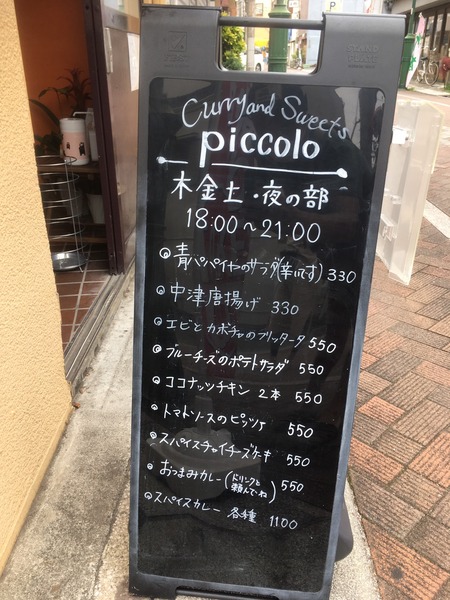 Curry and Sweets
piccolo
木金土・夜の部
18:00～21:00
青パパイヤのサラダ(辛いです) 330
中津唐揚げ 330
エビとカボチャのフリッタータ 550
ブルーチーズのポテトサラダ 550
ココナッツチキン 2本 550
トマトソースのピッツァ 550
スパイスチャイチーズケーキ 550
おつまみカレー(ドリンクと頼んでね) 550
スパイスカレー 各種 1100